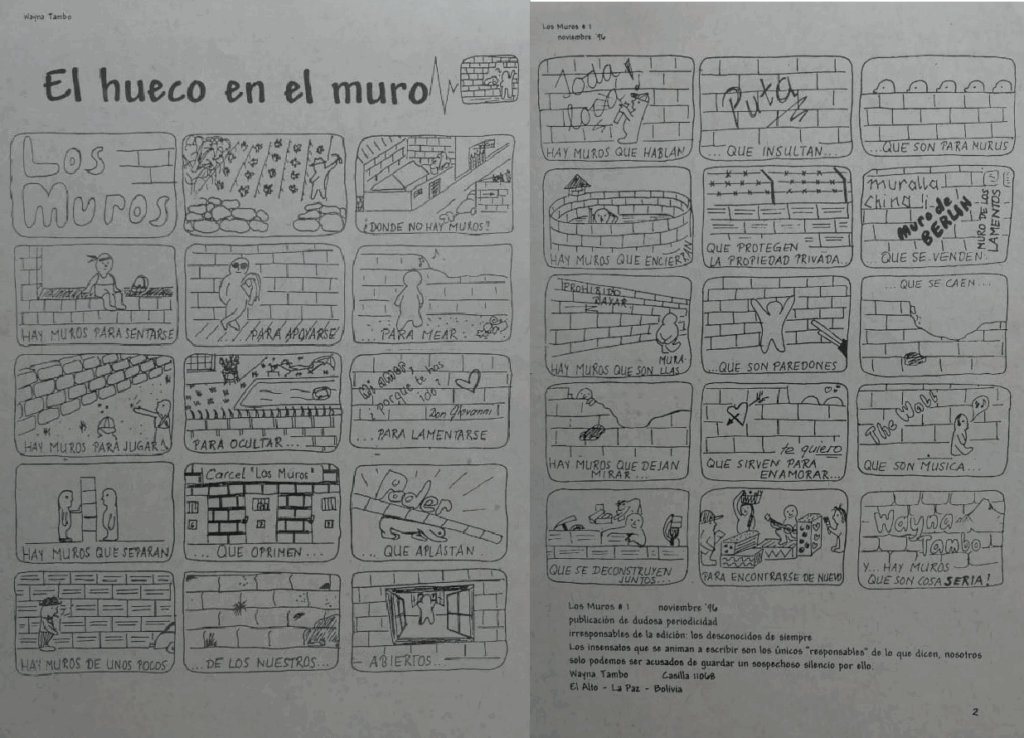 Wayna Tambo
El hueco en el muro
Los
Muros
¿DONDE NO HAY MUROS?
HAY MUROS PARA SENTARSE
...PARA APOYARSE
...PARA MEAR...
HAY MUROS PARA JUGAR
PARA OCULTAR...
Mi amor,
¡porque te has
ido?
Don Giovanni!
...PARA LAMENTARSE
HAY MUROS QUE SEPARAN
Carcel "Los Muros"
... QUE OPRIMEN...
Päder
... QUE APLASTAN...
HAY MUROS DE UNOS POCOS...
...DE LOS NUESTROS...
ABIERTOS...
Los Muros # 1
noviembre '96
HAY MUROS QUE HABLAN
Puta
...QUE INSULTAN...
...QUE SON PARA MURUS
HAY MUROS QUE ENCIERRAN
QUE PROTEGEN
LA PROPIEDAD PRIVADA...
muralla
china!!
Muro de
BERLIN
MURO DE LOS
LAMENTOS
QUE SE VENDEN
PROHIBIDO
RAYAR
HAY MUROS QUE SON
MURA-
LLAS
QUE SON PAREDONES
...QUE SE CAEN...
HAY MUROS QUE DEJAN
MIRAR...
te quiero
QUE SIRVEN PARA
ENAMORAR...
The Wall
QUE SON MUSICA...
QUE SE DECONSTRUYEN
JUNTOS...
PARA ENCONTRARSE DE NUEVO
Wayna
Tambo
Y... HAY MUROS
QUE SON COSA SERIA!
Los Muros # 1 noviembre '96
publicación de dudosa periodicidad
irresponsables de la edición: los desconocidos de siempre
Los insensatos que se animan a escribir son los únicos "responsables" de lo que dicen, nosotros
solo podemos ser acusados de guardar un sospechoso silencio por ello.
Wayna Tambo Casilla 11068
El Alto - La Paz - Bolivia
2